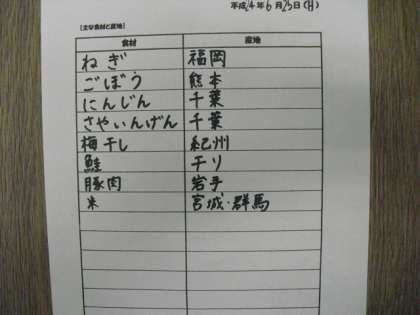 平成24年6月25日(月)
[主な食材と産地]
食材 産地
ねぎ 福岡
ごぼう 熊本
にんじん 千葉
さやいんげん 千葉
梅干し 紀州
鮭 チリ
豚肉 岩手
米 宮城・群馬